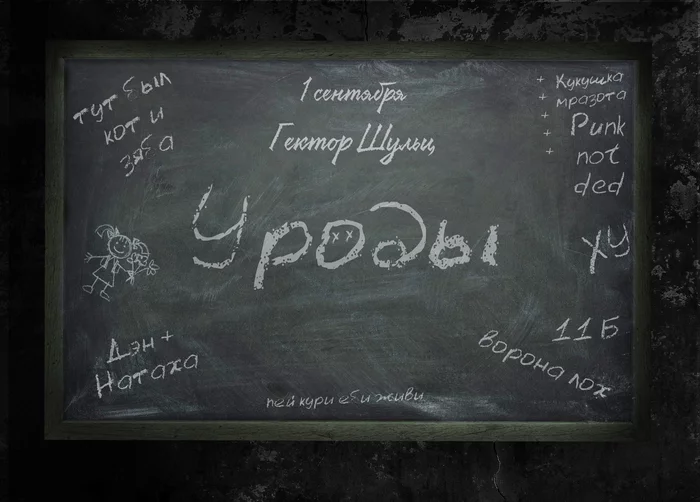 тут был
кот и
зяба
1 сентября
Гектор Шульц
Уроды
+ Кукушка
+ мразота
+ Punk
+ not
+ ded
ХУ
Дэн +
Натаха
11 Б
ворона лох
пей кури еби живи